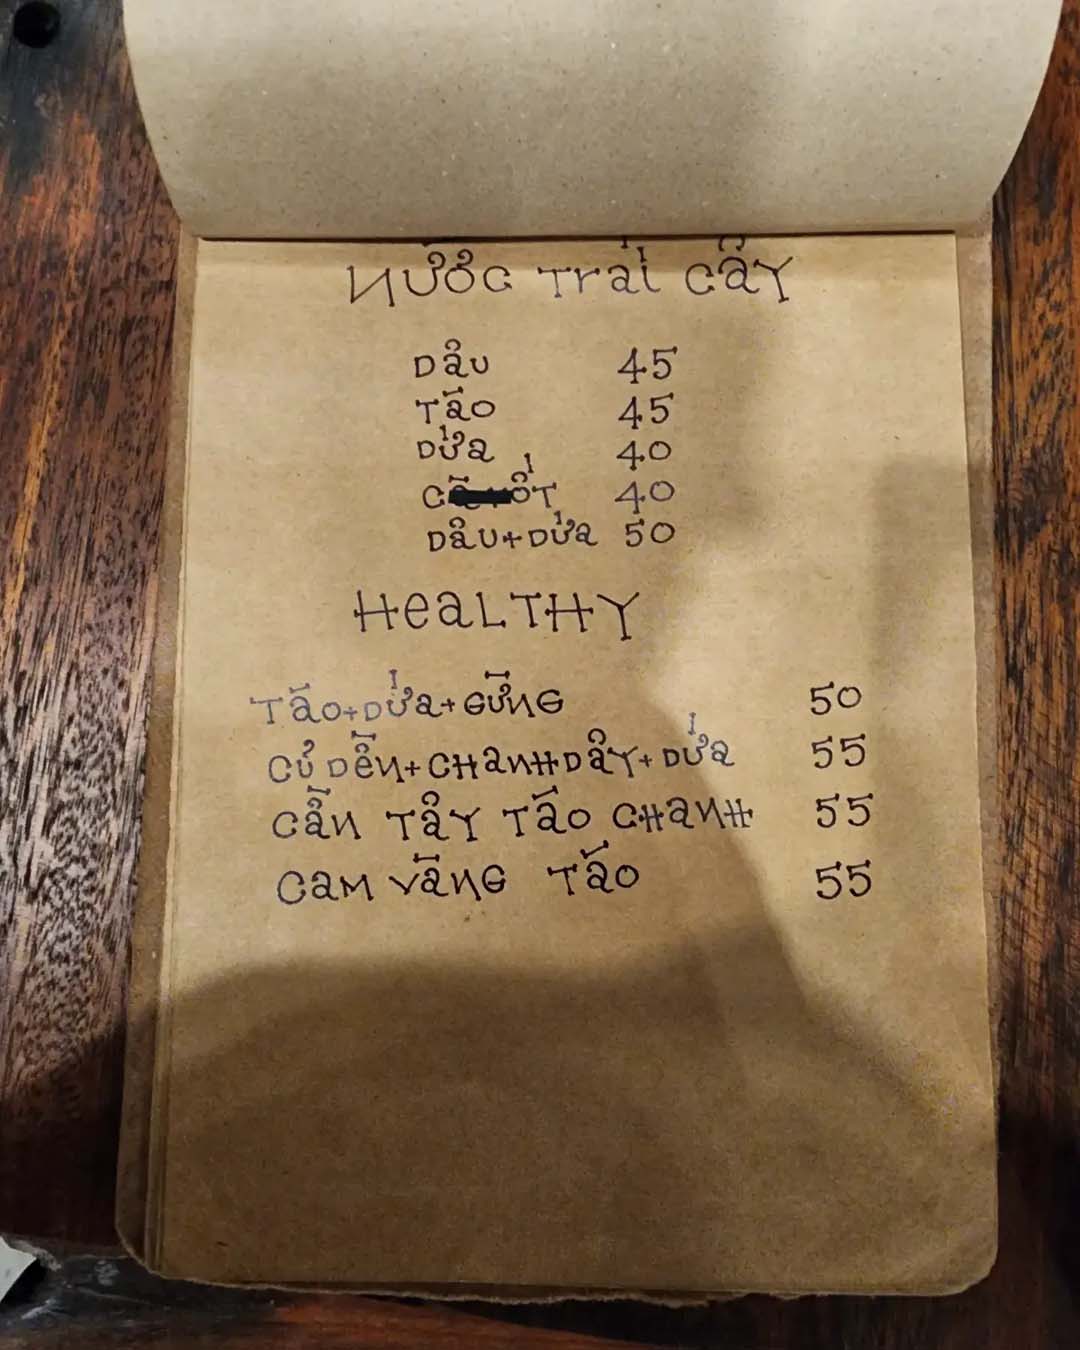 NƯỚC TRÁI CÂY
DÂU 45
TÁO 45
DỨA 40
40
DÂU+DỨA 50
HEALTHY
TÁO+DỨA+GỪNG 50
CỦ DỀN+CHANH DÂY+DỨA 55
CẦN TÂY TÁO CHANH 55
CAM VÀNG TÁO 55